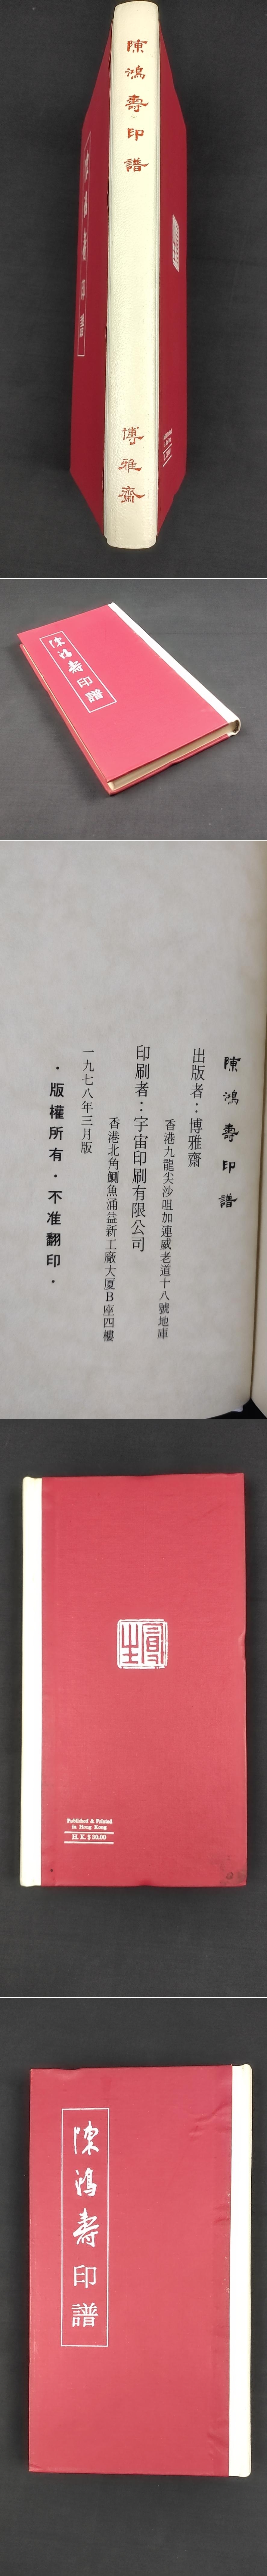 陳鴻壽印譜
博雅齋
陳鴻壽印譜
陳鴻壽印譜
出版者：博雅齋
香港九龍尖沙咀加連威老道十八號地庫
印刷者：宇宙印刷有限公司
香港北角鰂魚涌益新工廠大厦B座四樓
一九七八年三月版
·版權所有·不准翻印·
Published & Printed
in Hong Kong
H. K. $ 30.00
陳鴻壽印譜